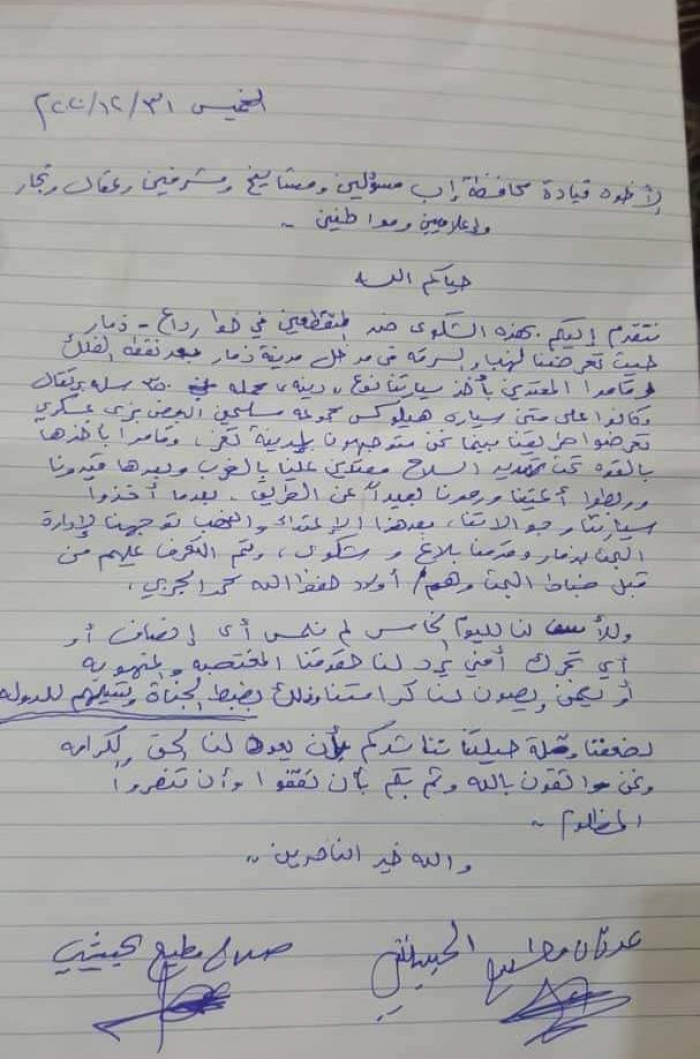 الخميس ٣١/١٢/٢٠٢٠
الأخوه قيادة محافظة إب مسؤلين ومشايخ ومشرفين وعقال وتجار
وإعلاميين ومواطنين ..
حياكم الله
نتقدم إليكم بهذه الشكوى ضد المتقطعين في خط رداع - ذمار
حيث تعرضنا لنهب والسرقه في مدخل مدينة ذمار بعد نقطه الفلك
وقاموا المعتدين بأخذ سيارتنا نوع، دينه، محمله ٣٥٠ سله برتقال
وكانوا على متن سياره هيلوكس مجموعه مسلحين البعض بزي عسكري
تعرضوا طريقنا بينما نحن متوجهون لمدينة تعز، وقاموا بأخذها
بالقوه تحت تهديد السلاح معتدين علينا بالضرب وبعدها قيدونا
وربطوا أعيننا ورمونا بعيداً عن الطريق. بعدما أخذوا
سيارتنا وجوالاتنا، بعد هذا الإعتداء والنهب توجهنا لإدارة
البحث بذمار وقدمنا بلاغ وشكوى، وتم التعرف عليهم من
قبل ضباط البحث وهم/ أولاد حفظ الله الحربي.
وللأسف لنا لليوم الخامس لم نلمس أي إنصاف أو
أي تحرك أمني يرد لنا حقوقنا المغتصبه والمنهوبه
أو يصون لنا كرامتنا وذلك بضبط الجناة وتسليمهم للدوله
لضعفنا وقلة حيلتنا نناشدكم بأن يعود لنا الحق والكرامه
ونحن واثقون بالله وثم بكم بأن تقفوا وأن تنصروا
المظلوم ..
والله خير الناصرين ..
عدنان الحبيشي
صلاح مطيع الحبيشي